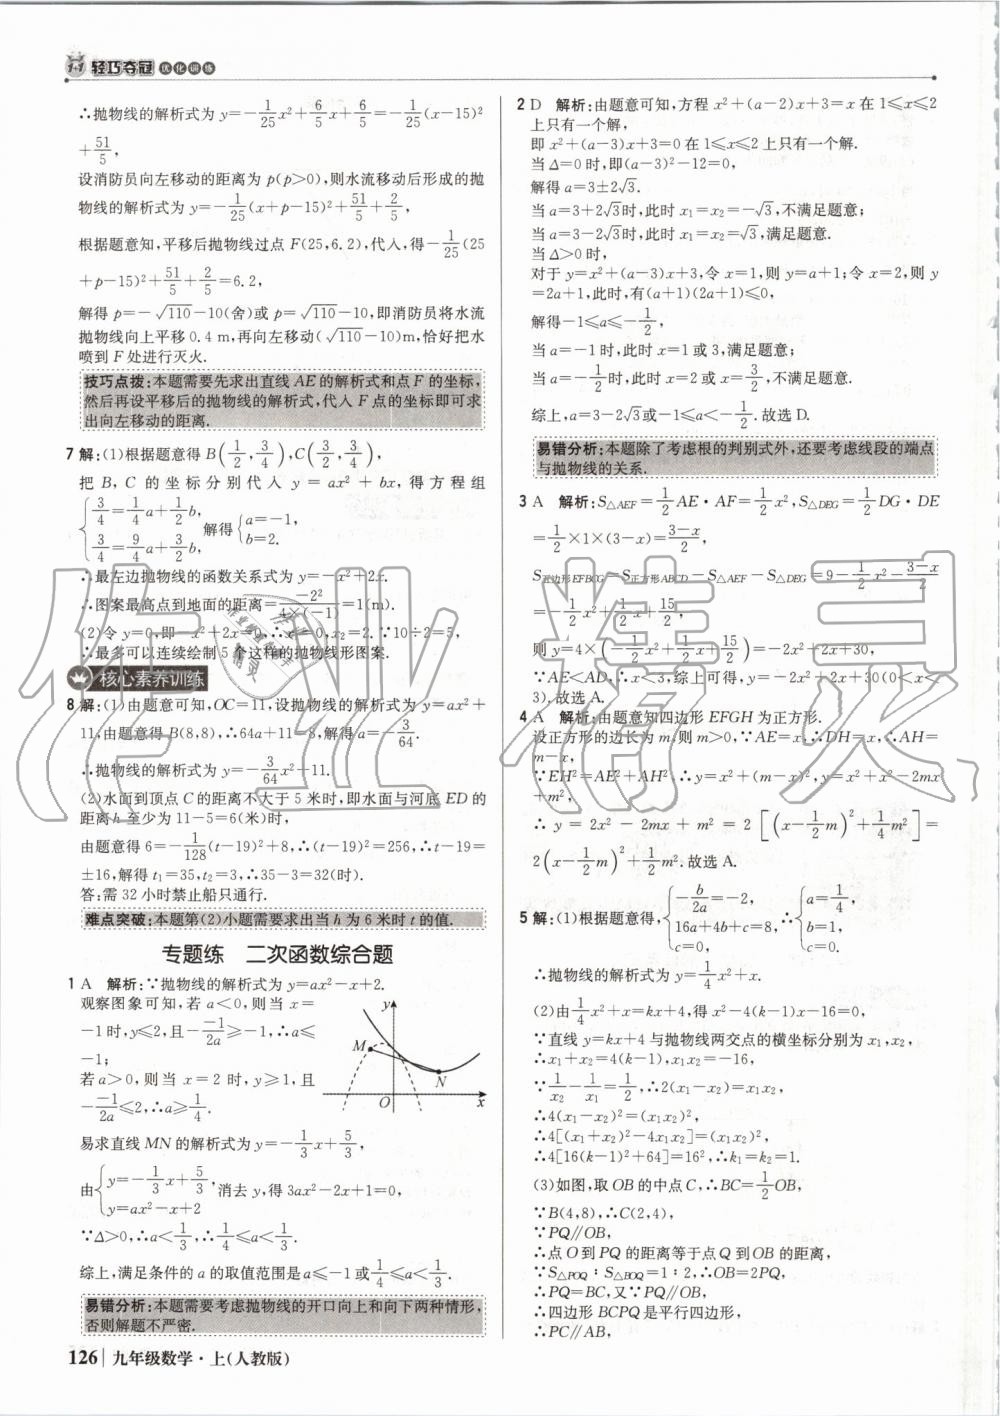 1+1 轻巧夺冠 优化训练
∴抛物线的解析式为 y=-1/25x²+6/5x+6/5=-1/25(x-15)²
+51/5,
设消防员向左移动的距离为 p(p>0),则水流移动后形成的抛
物线的解析式为 y=-1/25(x+p-15)²+51/5+2/5,
根据题意知,平移后抛物线过点 F(25,6.2),代入,得-1/25(25
+p-15)²+51/5+2/5=6.2,
解得 p=-√110-10(舍)或 p=√110-10,即消防员将水流
抛物线向上平移 0.4 m,再向左移动(√110-10)m,恰好把水
喷到 F 处进行灭火.
技巧点拨:本题需要先求出直线 AE 的解析式和点 F 的坐标,
然后再设平移后的抛物线的解析式,代入 F 点的坐标即可求
出向左移动的距离.
7 解:(1)根据题意得 B(1/2,3/4),C(3/2,3/4),
把 B, C 的坐标分别代入 y = ax² + bx,得方程组
{3/4=1/4a+1/2b, 3/4=9/4a+3/2b, 解得{a=-1, b=2.
∴最左边抛物线的函数关系式为 y=-x²+2x.
∴图案最高点到地面的距离=-2²/4×(-1)=1(m).
(2)令 y=0,即-x²+2x=0,∴x₁=0,x₂=2.∵10÷2=5,
∴最多可以连续绘制 5 个这样的抛物线形图案.
核心素养训练
8 解:(1)由题意可知,OC=11,设抛物线的解析式为 y=ax²+
11,由题意得 B(8,8),∴64a+11=8,解得 a=-3/64.
∴抛物线的解析式为 y=-3/64x²+11.
(2)水面到顶点 C 的距离不大于 5 米时,即水面与河底 ED 的
距离 h 至少为 11-5=6(米)时,
由题意得 6=-1/128(t-19)²+8,∴(t-19)²=256,∴t-19=
±16,解得 t₁=35,t₂=3,∴35-3=32(时).
答:需 32 小时禁止船只通行.
难点突破:本题第(2)小题需要求出当 h 为 6 米时 t 的值.
专题练 二次函数综合题
1 A 解析:∵抛物线的解析式为 y=ax²-x+2.
观察图象可知,若 a<0,则当 x=
-1 时,y≤2,且--1/2a≥-1,∴a≤
-1;
若 a>0,则当 x=2 时,y≥1,且
--1/2a≤2,∴a≥1/4.
y
M
N
O
x
易求直线 MN 的解析式为 y=-1/3x+5/3,
由{y=-1/3x+5/3, y=ax²-x+2 消去 y,得 3ax²-2x+1=0,
∵Δ>0,∴a<1/3,∴1/4≤a<1/3.
综上,满足条件的 a 的取值范围是 a≤-1 或1/4≤a<1/3.
易错分析:本题需要考虑抛物线的开口向上和向下两种情形,
否则解题不严密.
126 九年级数学·上(人教版)
2 D 解析:由题意可知,方程 x²+(a-2)x+3=x 在 1≤x≤2
上只有一个解,
即 x²+(a-3)x+3=0 在 1≤x≤2 上只有一个解.
当 Δ=0 时,即(a-3)²-12=0,
解得 a=3±2√3.
当 a=3+2√3时,此时 x₁=x₂=-√3,不满足题意;
当 a=3-2√3时,此时 x₁=x₂=√3,满足题意.
当 Δ>0 时,
对于 y=x²+(a-3)x+3,令 x=1,则 y=a+1;令 x=2,则 y
=2a+1,此时,有(a+1)(2a+1)≤0,
解得-1≤a≤-1/2,
当 a=-1 时,此时 x=1 或 3,满足题意;
当 a=-1/2时,此时 x=2 或 x=3/2,不满足题意.
综上,a=3-2√3或-1≤a<-1/2.故选 D.
易错分析:本题除了考虑根的判别式外,还要考虑线段的端点
与抛物线的关系.
3 A 解析:S△AEF=1/2AE·AF=1/2x²,S△DEG=1/2DG·DE
=1/2×1×(3-x)=3-x/2,
S五边形EFBCG=S正方形ABCD-S△AEF-S△DEG=9-1/2x²-3-x/2
=-1/2x²+1/2x+15/2,
则 y=4×(-1/2x²+1/2x+15/2)=-2x²+2x+30,
∵AE<AD,∴x<3,综上可得,y=-2x²+2x+30(0<x<
3).故选 A.
4 A 解析:由题意知四边形 EFGH 为正方形.
设正方形的边长为 m,则 m>0,∵AE=x,∴DH=x,∴AH=
m-x,
∵EH²=AE²+AH²,∴y=x²+(m-x)²,y=x²+x²-2mx
+m²,
∴ y = 2x² - 2mx + m² = 2[(x-1/2m)²+1/4m²] =
2(x-1/2m)²+1/2m².故选 A.
5 解:(1)根据题意得,{-b/2a=-2, 16a+4b+c=8, c=0, ∴{a=1/4, b=1, c=0.
∴抛物线的解析式为 y=1/4x²+x.
(2)由1/4x²+x=kx+4,得 x²-4(k-1)x-16=0,
∵直线 y=kx+4 与抛物线两交点的横坐标分别为 x₁,x₂,
∴x₁+x₂=4(k-1),x₁x₂=-16,
∵1/x₂-1/x₁=1/2,∴2(x₁-x₂)=x₁x₂,
∴4(x₁-x₂)²=(x₁x₂)²,
∴4[(x₁+x₂)²-4x₁x₂]=(x₁x₂)²,
∴4[16(k-1)²+64]=16²,∴k₁=k₂=1.
(3)如图,取 OB 的中点 C,∴BC=1/2OB,
∵B(4,8),∴C(2,4),
∵PQ∥OB,
∴点 O 到 PQ 的距离等于点 Q 到 OB 的距离,
∵S△POQ∶S△BOQ=1∶2,∴OB=2PQ,
∴PQ=BC,又∵PQ∥OB,
∴四边形 BCPQ 是平行四边形,
∴PC∥AB,
作业精灵